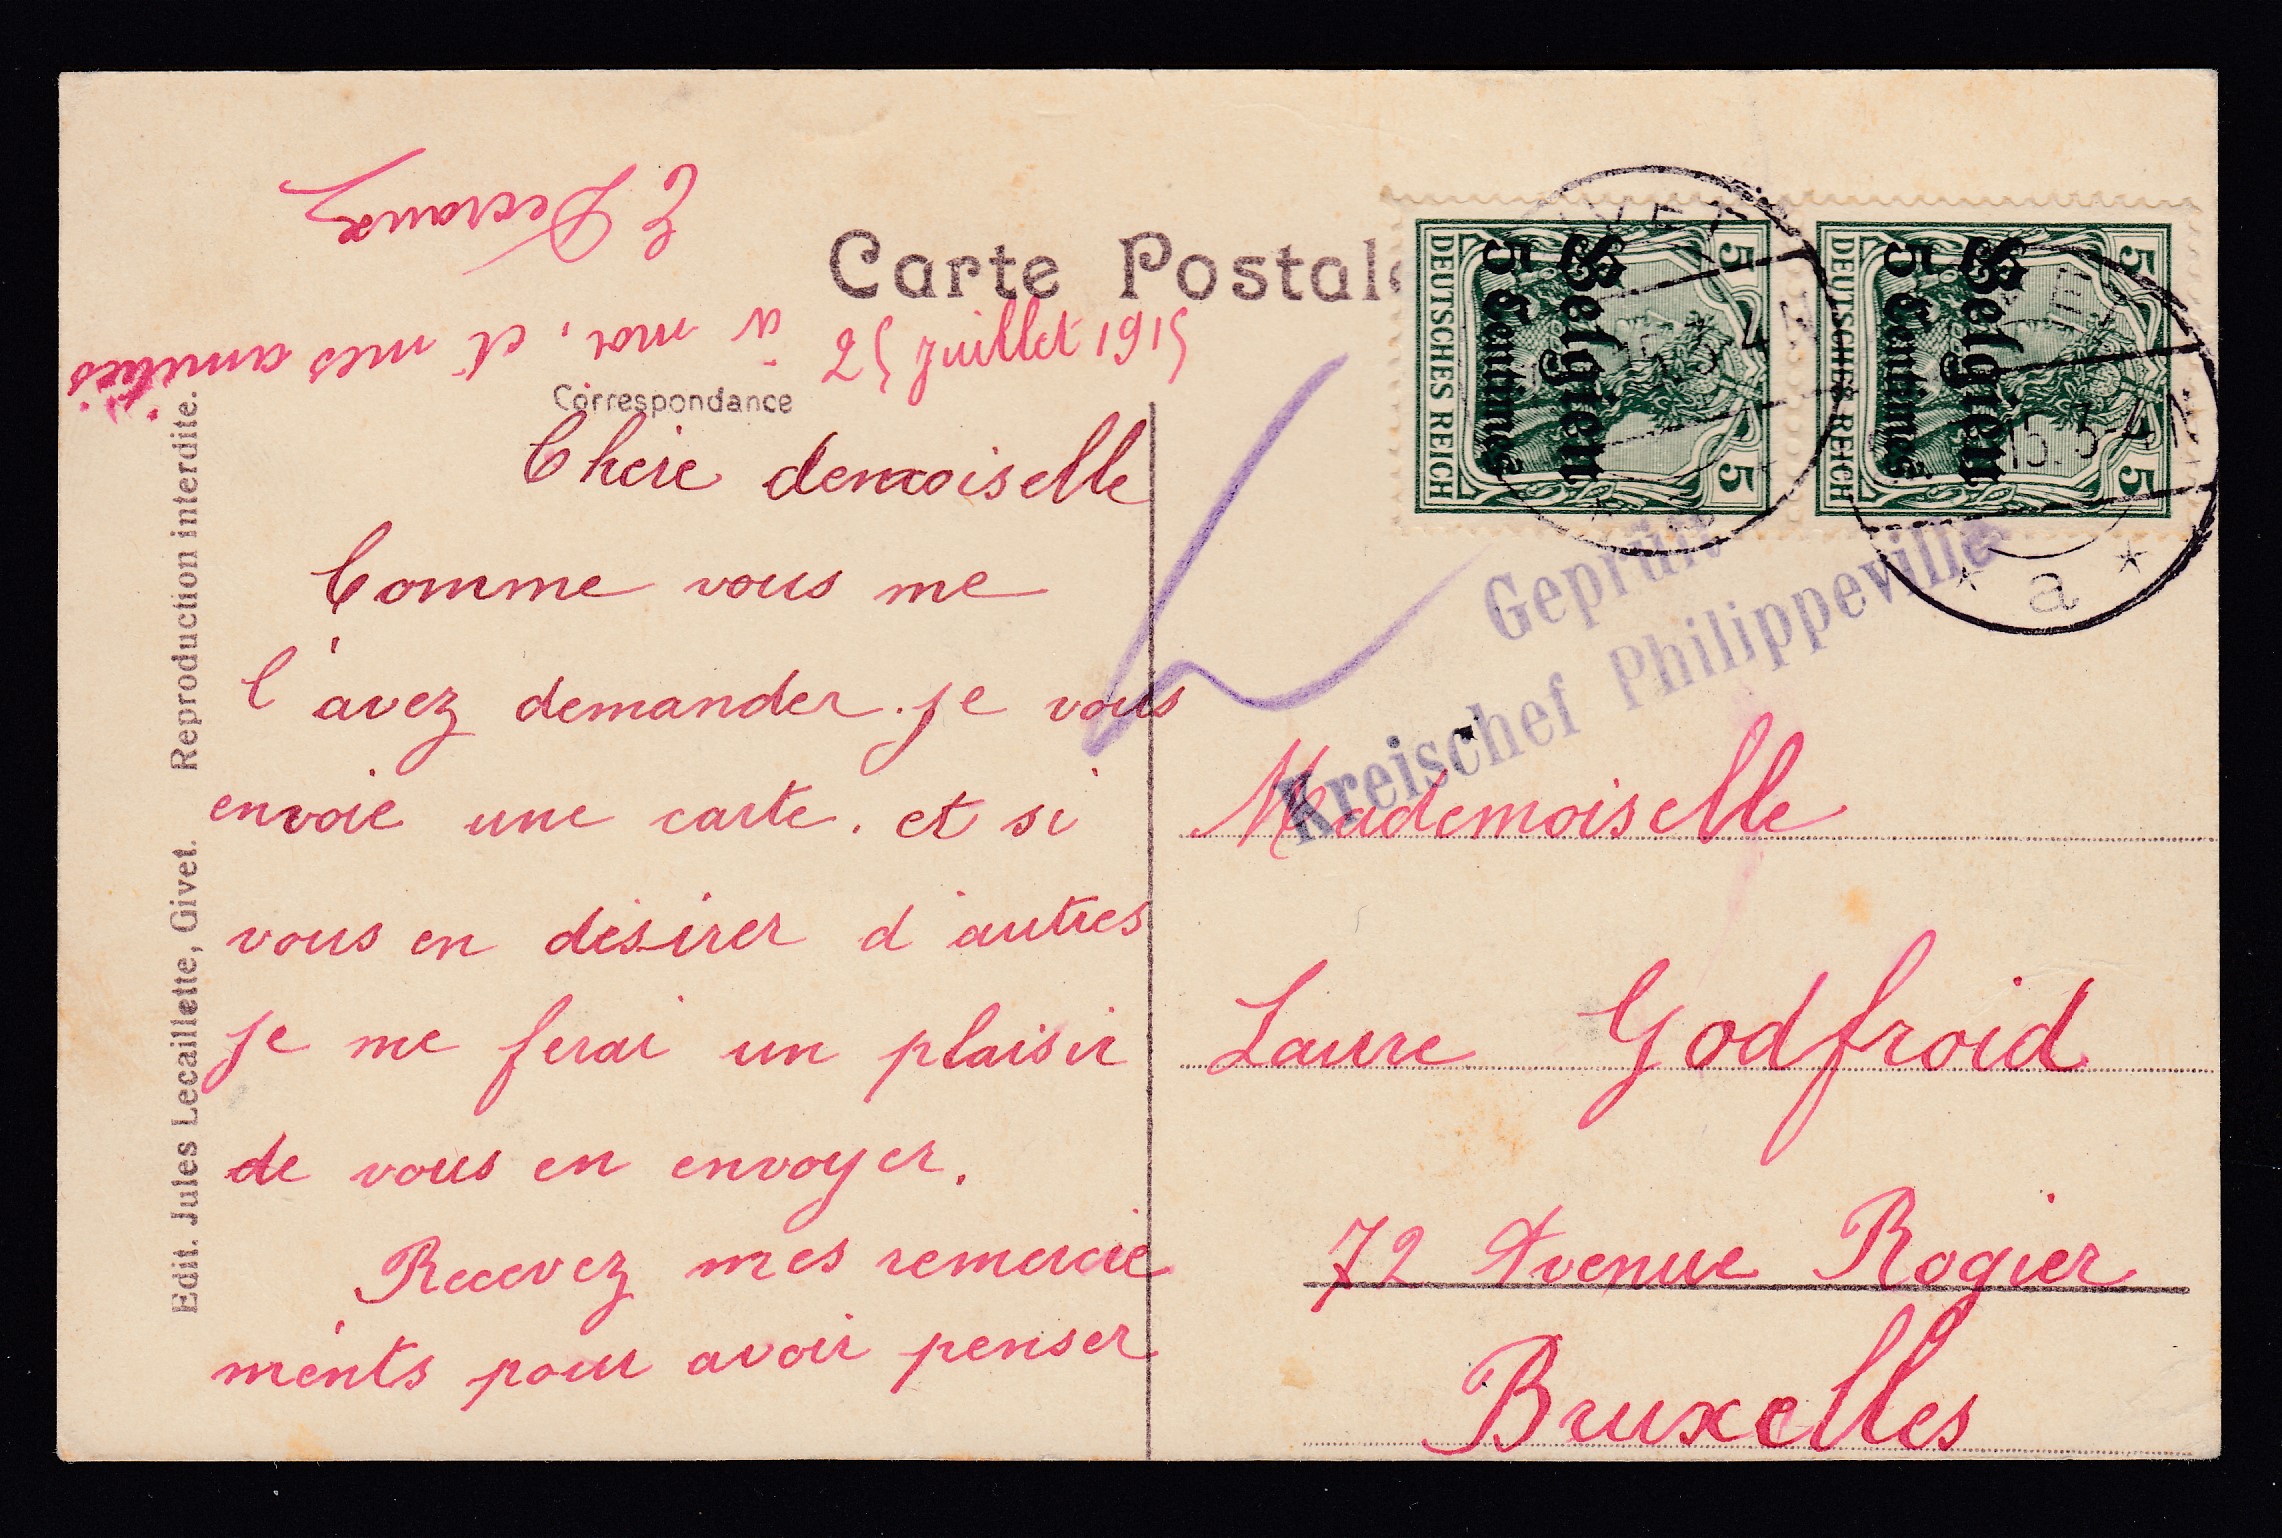 Carte Postale
Correspondance
25 juillet 1915
Chere demoiselle
Comme vous me
l'avez demander. je vous
envoie une carte. et si
vous en désirer d'autres
je me ferai un plaisir
de vous en envoyer.
Recevez mes remercie
ments pour avoir penser
à moi, et mes amitiés
Edit. Jules Lecaillette, Givet. Reproduction interdite.
DEUTSCHES REICH
5 5
Belgien
5 Centimes
DEUTSCHES REICH
5 5
Belgien
5 Centimes
* a *
Geprüft
Kreischef Philippeville
Mademoiselle
Laure Godfroid
72 Avenue Rogier
Bruxelles